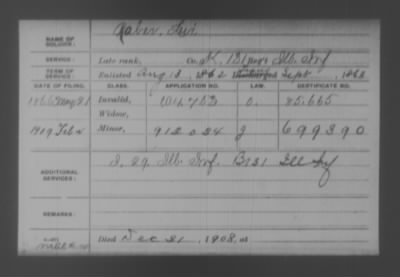 NAME OF SOLDIER: Raber, Levi
SERVICE: Late rank, Co. K, 131 Reg't Ill. Inf
TERM OF SERVICE: Enlisted Aug 13, 1862 Sept, 1863
DATE OF FILING. CLASS. APPLICATION NO. LAW. CERTIFICATE NO.
1866 Aug 21 Invalid, 104753 85.665
Widow,
1909 Feb 4 Minor, 912034 699390
ADDITIONAL SERVICES: I. 29 Ill. Inf. B 131 Ill Inf
REMARKS:
Died Dec 21, 1908, at